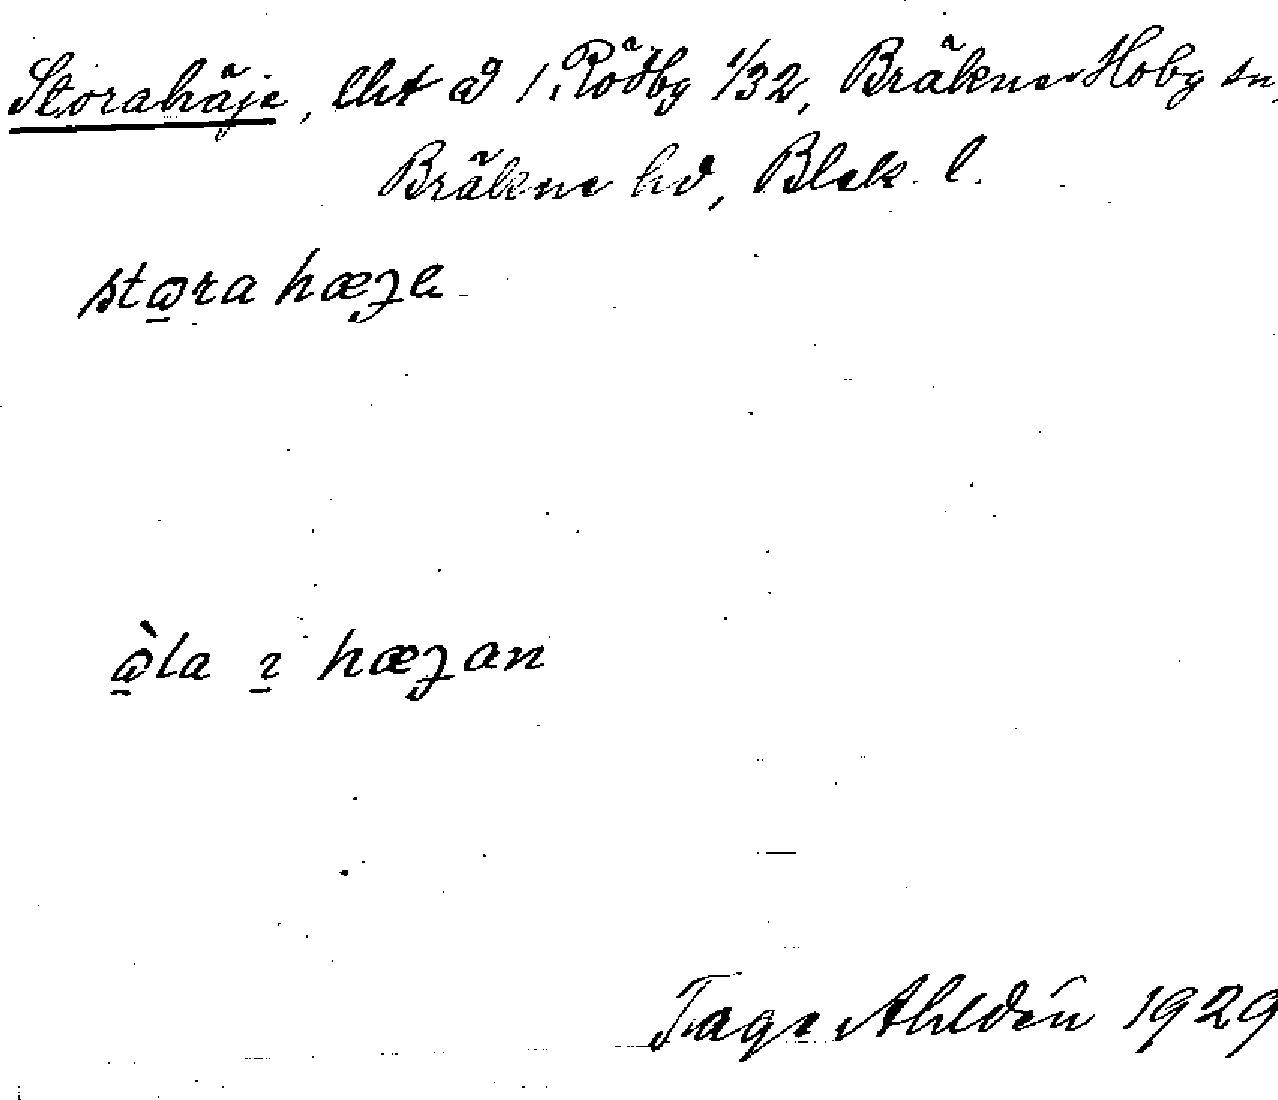 Storahäje, lht å 1 Rödby 1/32, Bräkne-Hoby sn,
Bräkne hd, Blek. l.
stωra hæȷe
ὼla ı hæȷan
Tage Ahldén 1929